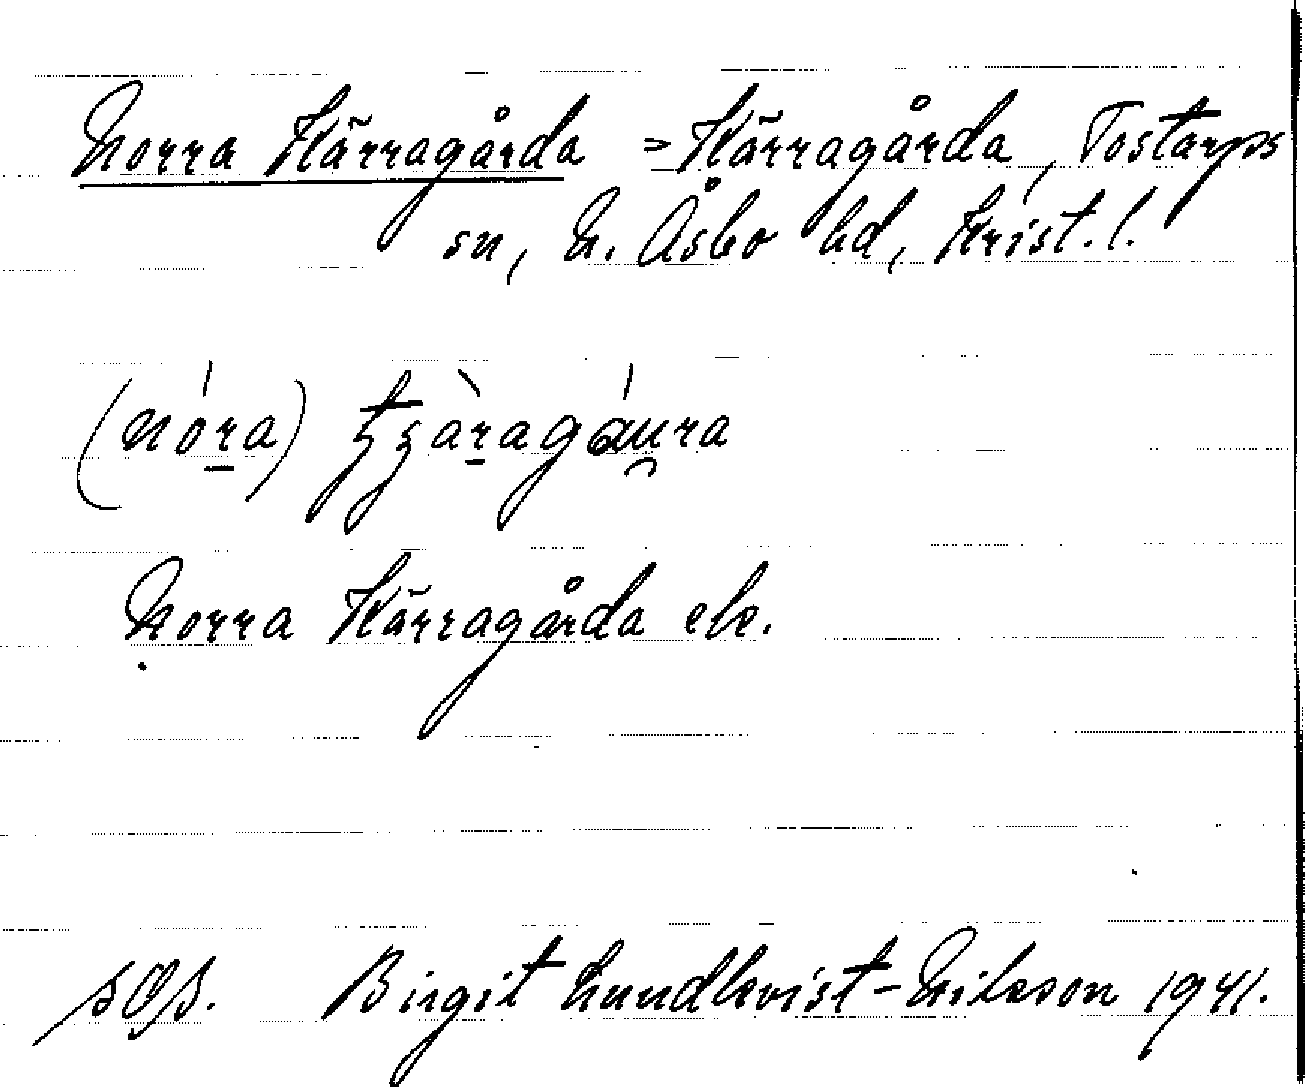 Norra Kärragårda = Kärragårda, Tostarps
sn, N. Åsbo hd, Krist. l.
(nóra)
Norra Kärragårda ek.
Birgit Lundkvist-Nilsson 1941.